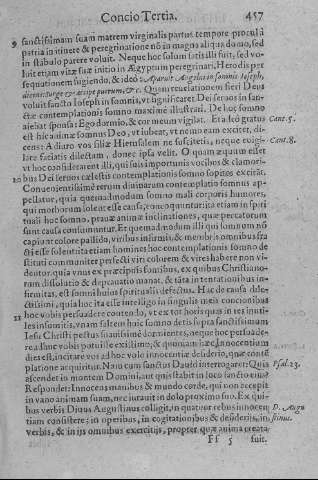 Concio Tertia. 457
9 sanctissimam suam matrem virginalis partus tempore procul à
patria in itinere & peregrinatione nõ in magna aliqua domo, sed
in stabulo parere voluit. Neque hoc solum satis illi fuit, sed vo-
luit etiam vitæ suæ initio in Ægyptum peregrinari, Herodis per
sequutionem fugiendo, & ideò: Apparuit Angelus in somnis Ioseph,
dicens: surge & accipe puerum, &c. Quam reuelationem fieri Deus
voluit sancto Ioseph in somnis, vt significaret Dei seruos in san-
ctæ contemplationis somno maximè illustrari. De hoc somno
aiebat sponsa: Ego dormio, & cor meum vigilat. Et adeò gratus Cant. 5.
est hic animæ somnus Deo, vt iubeat, vt nemo eam excitet, di-
cens: Adiuro vos filiæ Hierusalem ne suscitetis, neque euigi- Cant. 8.
lare faciatis dilectam, donec ipsa velit. O quam æquum esset
vt hoc considerarent illi, qui suis importunis vocibus & clamori-
10 bus Dei seruos cælestis contemplationis somno sopitos excitāt.
Conuenientissimè rerum diuinarum contemplatio somnus ap-
pellatur, quia quemadmodum somno mali corporis humores,
qui morborum solent esse causa, concoquuntur: ita etiam in spiri
tuali hoc somno, prauæ animæ inclinationes, quæ peccatorum
sunt causa consumuntur. Et quemadmodum illi qui somnum nõ
capiunt colore pallido, viribus infirmis, & membris omnibus fra
cti esse solent: ita etiam homines hoc contemplationis somno de
stituti communiter perfecti viri colorem & vires habere non vi-
dentur.
rum dissolutio & deprauatio manat, & tāta in tentationibus in-
firmitas, est somni huius spiritualis defectus. Hac de causa dile-
ctissimi, quia hoc ita esse intelligo in singulis meis concionibus
11 hoc vobis persuadere contendo, vt ex tot horis quas in
les insumitis, vnam saltem huic somno detis supra sanctissimum
Iesu Christi pectus suauissimè dormientes, neque hoc persuade-
re
diet est, incitare vos ad hoc volo innocentiæ desiderio, quæ contē
platione acquiritur. Nam cum sanctus Dauid interrogaret: Quis Psal. 23.
ascendet in montem Domini, aut quis stabit in loco sancto eius?
Respondet: Innocens manibus & mundo corde, qui non accepit
in vano animam suam, nec iurauit in dolo proximo suo. Ex qui-
bus verbis Diuus Augustinus colligit, in quatuor rebus innocen D. Augu
tiam consistere; in operibus, in cogitationibus & desideriis, in stinus.
verbis, & in ijs omnibus exercitijs, propter quæ anima creata
Ff 5 fuit.